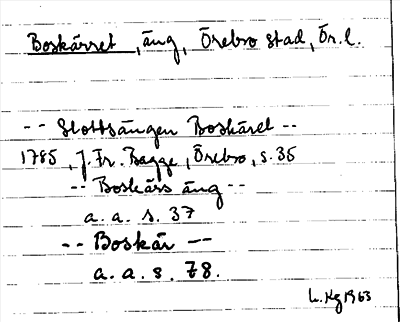 Boskärret, äng, Örebro stad, Ör. l.
-- Slottsängen Boskäret --
1785, J. Fr. Bagge, Örebro, s. 35
-- Boskärs äng --
a. a. s. 37
-- Boskär --
a. a. s. 78.
L. Hg 1963